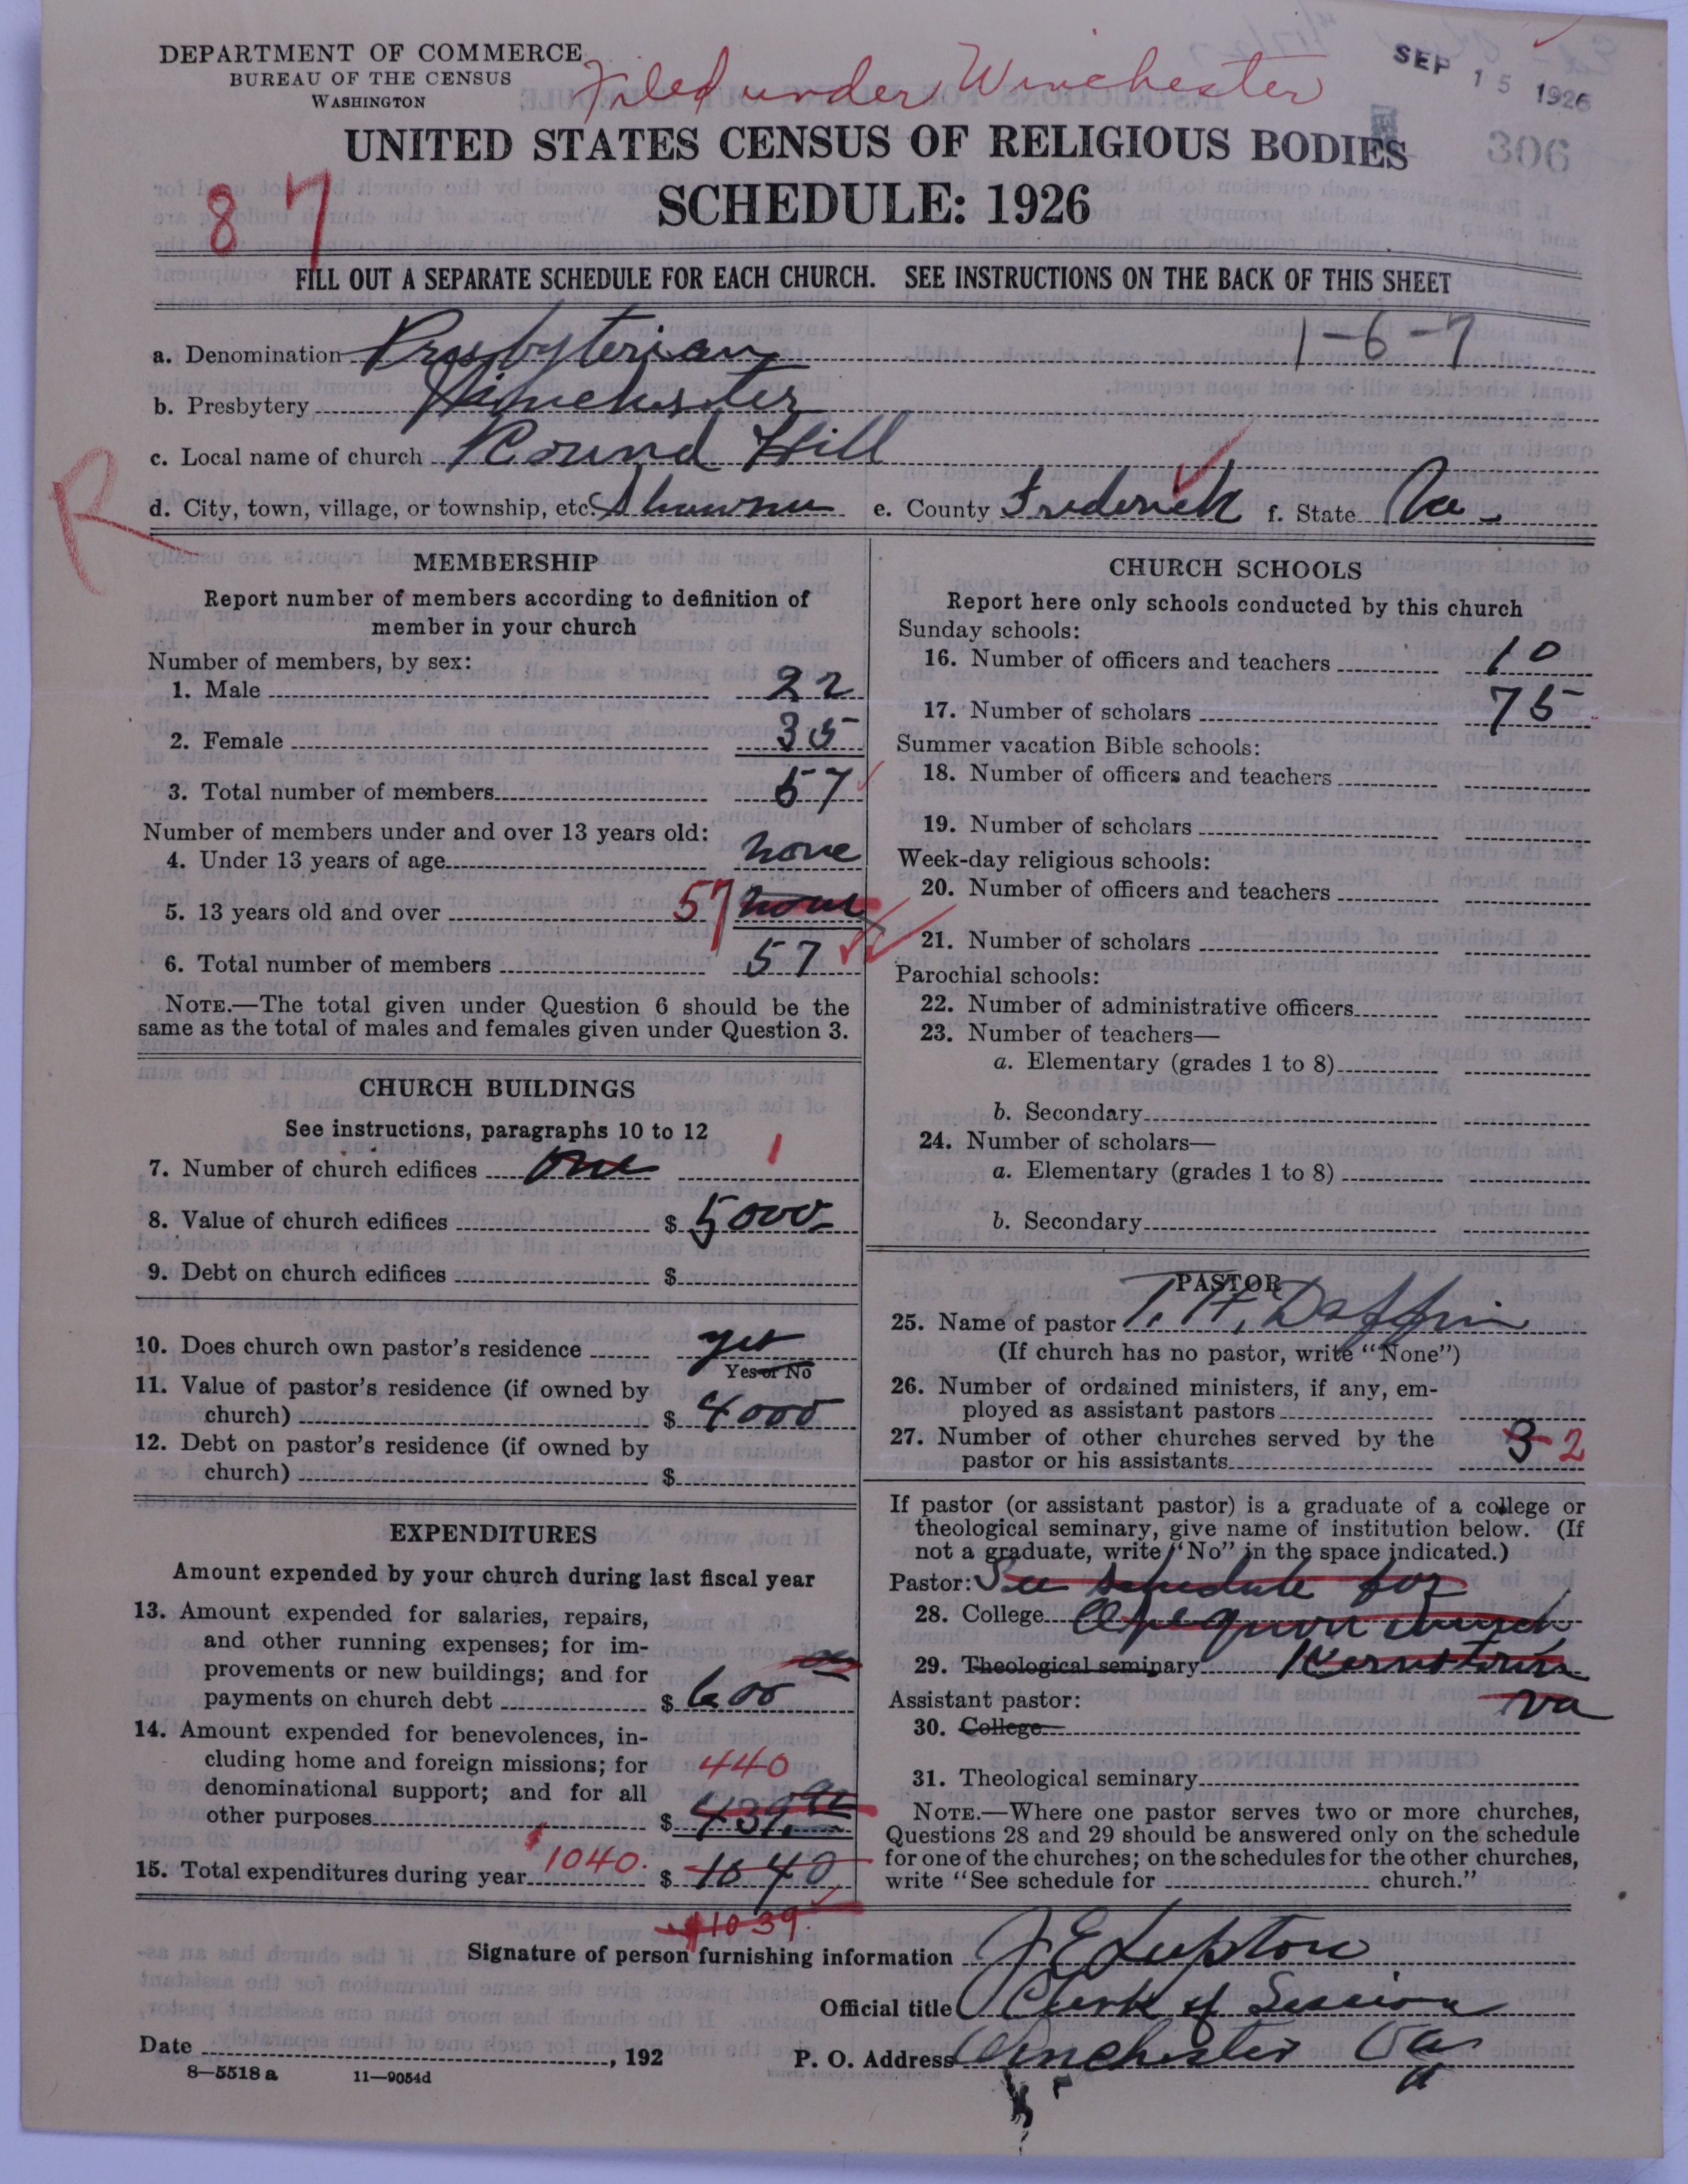 DEPARTMENT OF COMMERCE
BUREAU OF THE CENSUS
WASHINGTON
Filed under Winchester
SEP 15 1926
306
UNITED STATES CENSUS OF RELIGIOUS BODIES
SCHEDULE: 1926
87
FILL OUT A SEPARATE SCHEDULE FOR EACH CHURCH. SEE INSTRUCTIONS ON THE BACK OF THIS SHEET
a. Denomination Presbyterian 1-6-7
b. Presbytery Winchester
c. Local name of church Round Hill
R
d. City, town, village, or township, etc. Shawnee e. County Frederick f. State Va.
MEMBERSHIP
Report number of members according to definition of
member in your church
Number of members, by sex:
1. Male 22
2. Female 35
3. Total number of members 57
Number of members under and over 13 years old:
4. Under 13 years of age none
5. 13 years old and over 57 none
6. Total number of members 57
NOTE.—The total given under Question 6 should be the
same as the total of males and females given under Question 3.
CHURCH BUILDINGS
See instructions, paragraphs 10 to 12
7. Number of church edifices one 1
8. Value of church edifices $ 5000
9. Debt on church edifices $
10. Does church own pastor's residence yes
Yes or No
11. Value of pastor's residence (if owned by
church) $ 4000
12. Debt on pastor's residence (if owned by
church) $
EXPENDITURES
Amount expended by your church during last fiscal year
13. Amount expended for salaries, repairs,
and other running expenses; for im-
provements or new buildings; and for
payments on church debt $ 600
14. Amount expended for benevolences, in-
cluding home and foreign missions; for 440
denominational support; and for all
other purposes $ 439
15. Total expenditures during year $ 1040. $ 1040
$1039.
CHURCH SCHOOLS
Report here only schools conducted by this church
Sunday schools:
16. Number of officers and teachers 10
17. Number of scholars 75
Summer vacation Bible schools:
18. Number of officers and teachers
19. Number of scholars
Week-day religious schools:
20. Number of officers and teachers
21. Number of scholars
Parochial schools:
22. Number of administrative officers
23. Number of teachers—
a. Elementary (grades 1 to 8)
b. Secondary
24. Number of scholars—
a. Elementary (grades 1 to 8)
b. Secondary
PASTOR
25. Name of pastor T. H. Daffin
(If church has no pastor, write "None")
26. Number of ordained ministers, if any, em-
ployed as assistant pastors
27. Number of other churches served by the
pastor or his assistants 3 2
If pastor (or assistant pastor) is a graduate of a college or
theological seminary, give name of institution below. (If
not a graduate, write "No" in the space indicated.)
Pastor: See schedule for
28. College Opequon church
29. Theological seminary Kernstown
Assistant pastor: Va
30. College
31. Theological seminary
NOTE.—Where one pastor serves two or more churches,
Questions 28 and 29 should be answered only on the schedule
for one of the churches; on the schedules for the other churches,
write "See schedule for church."
Signature of person furnishing information J E Lupton
Official title Clerk of Session
Date , 192
P. O. Address Winchester Va
8—5518 a 11—9054d